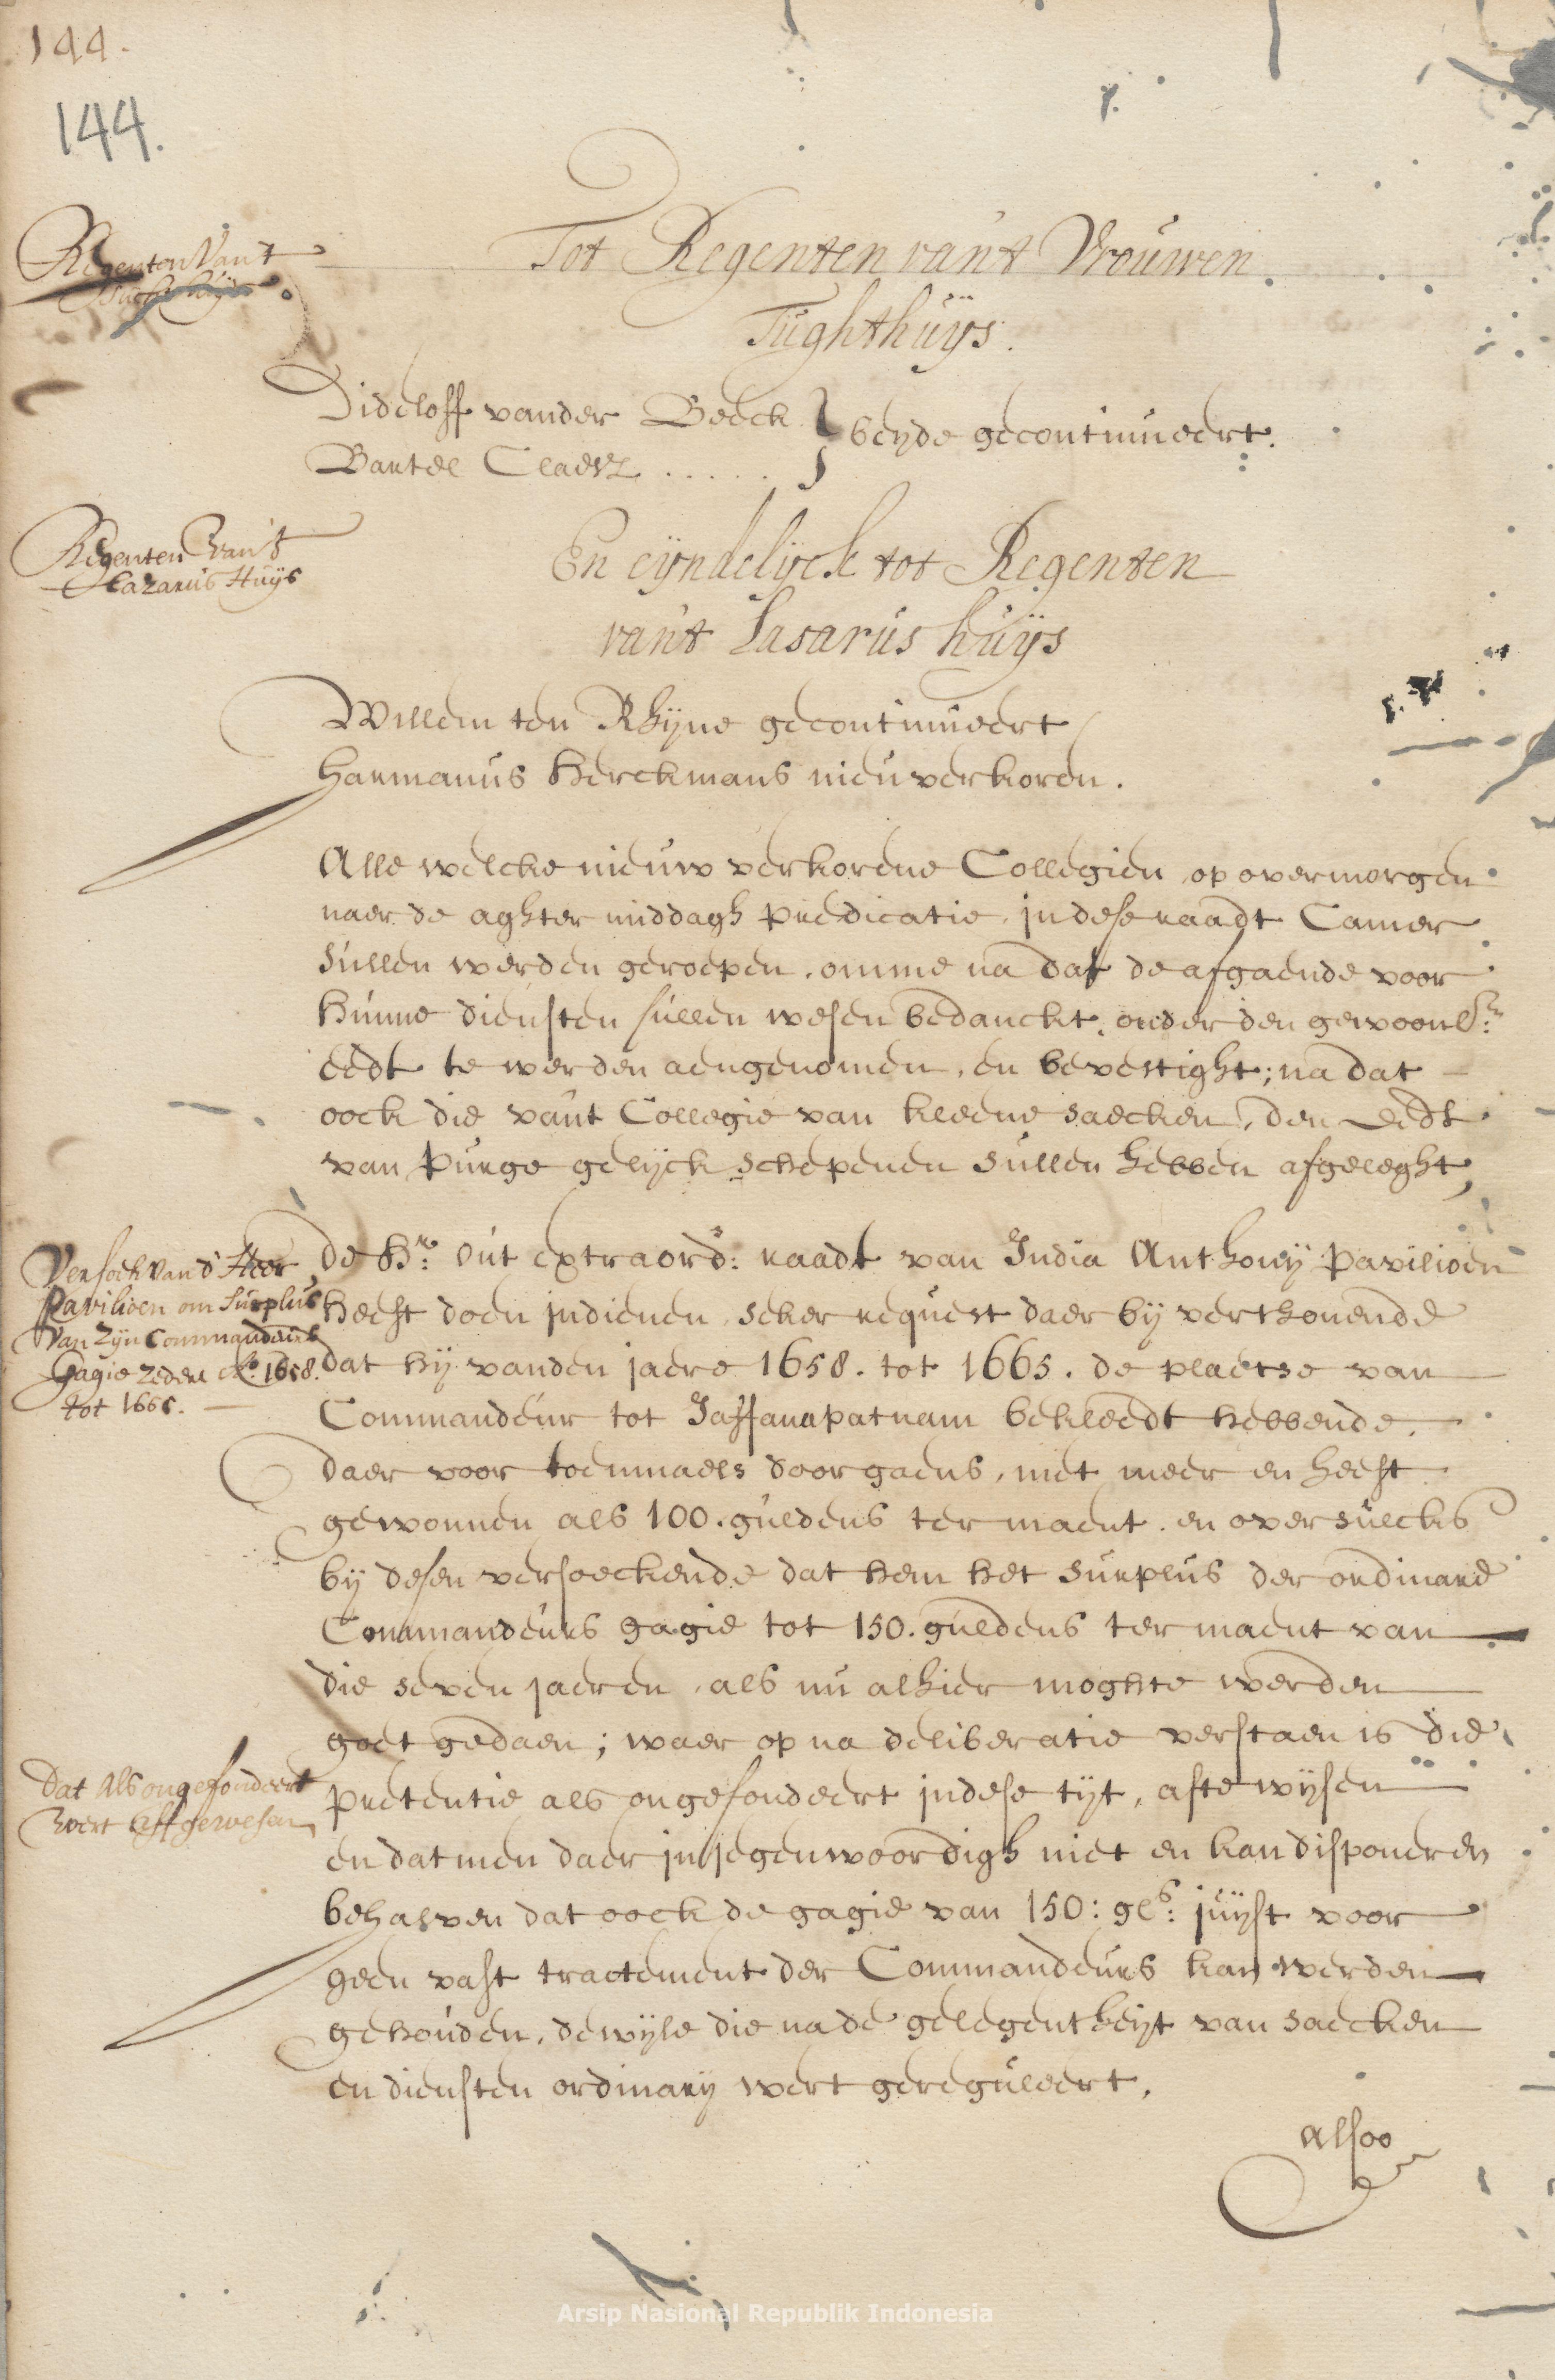 144.
144.
Regenten Vant
Tught huijs
Tot Regenten vant Vrouwen
Tughthuijs.
Dideloff vander Beeck } beyde gecontinueert.
Bartel Claesz .....
Regenten van't
Lazarus Huijs
En eijndelijck tot Regenten
vant Lasarus huijs
Willem ten Rhijne gecontinueert
Harmanus Herckmans nieu verkoren.
Alle welcke nieuw verkorene Collegien op overmorgen
naer de aghter middagh predicatie, in dese raadt Camer
sullen werden geroepen, omme na dat de afgaende voor
hunne diensten sullen wesen bedanckt, onder den gewoonl:en
eedt te werden aengenomen, en bevestight; na dat
oock die vant Collegie van kleene saecken, den eedt
van purge gelijck schepenen sullen hebben afgeleght,
Versoek van d' Heer
Pavilioen om surplus
van zijn Commandeurs
Gagie zedert Ao. 1658.
tot 1665.
De Hr: out extraord: raadt van India Anthonij Pavilioen
heeft doen indienen seker request daer bij verthonende
dat hij vanden jaere 1658. tot 1665. de plaetse van
Commandeur tot Jaffanapatnam bekleedt hebbende,
daer voor toenmaels doorgaens, niet meer en heeft
gewonnen als 100. guldens ter maent. en oversulcks
bij desen versoeckende dat hem het surplus der ordinare
Commandeurs gagie tot 150. guldens ter maent van
die seven jaeren, als nu alhier moghte werden
goet gedaen; waer op na deliberatie verstaen is die
Dat als ongefondeert
wert affgewesen
pretentie als ongefondeert in dese tijt, afte wijsen
en dat men daer in jegenwoordigh niet en kan disponeren
behalven dat oock de gagie van 150: gls: juijst voor
geen vast tractement der Commandeurs kan werden
gehouden, dewijle die na de gelegentheijt van saecken
en diensten ordinarij wert gereguleert,
Alsoo
Arsip Nasional Republik Indonesia